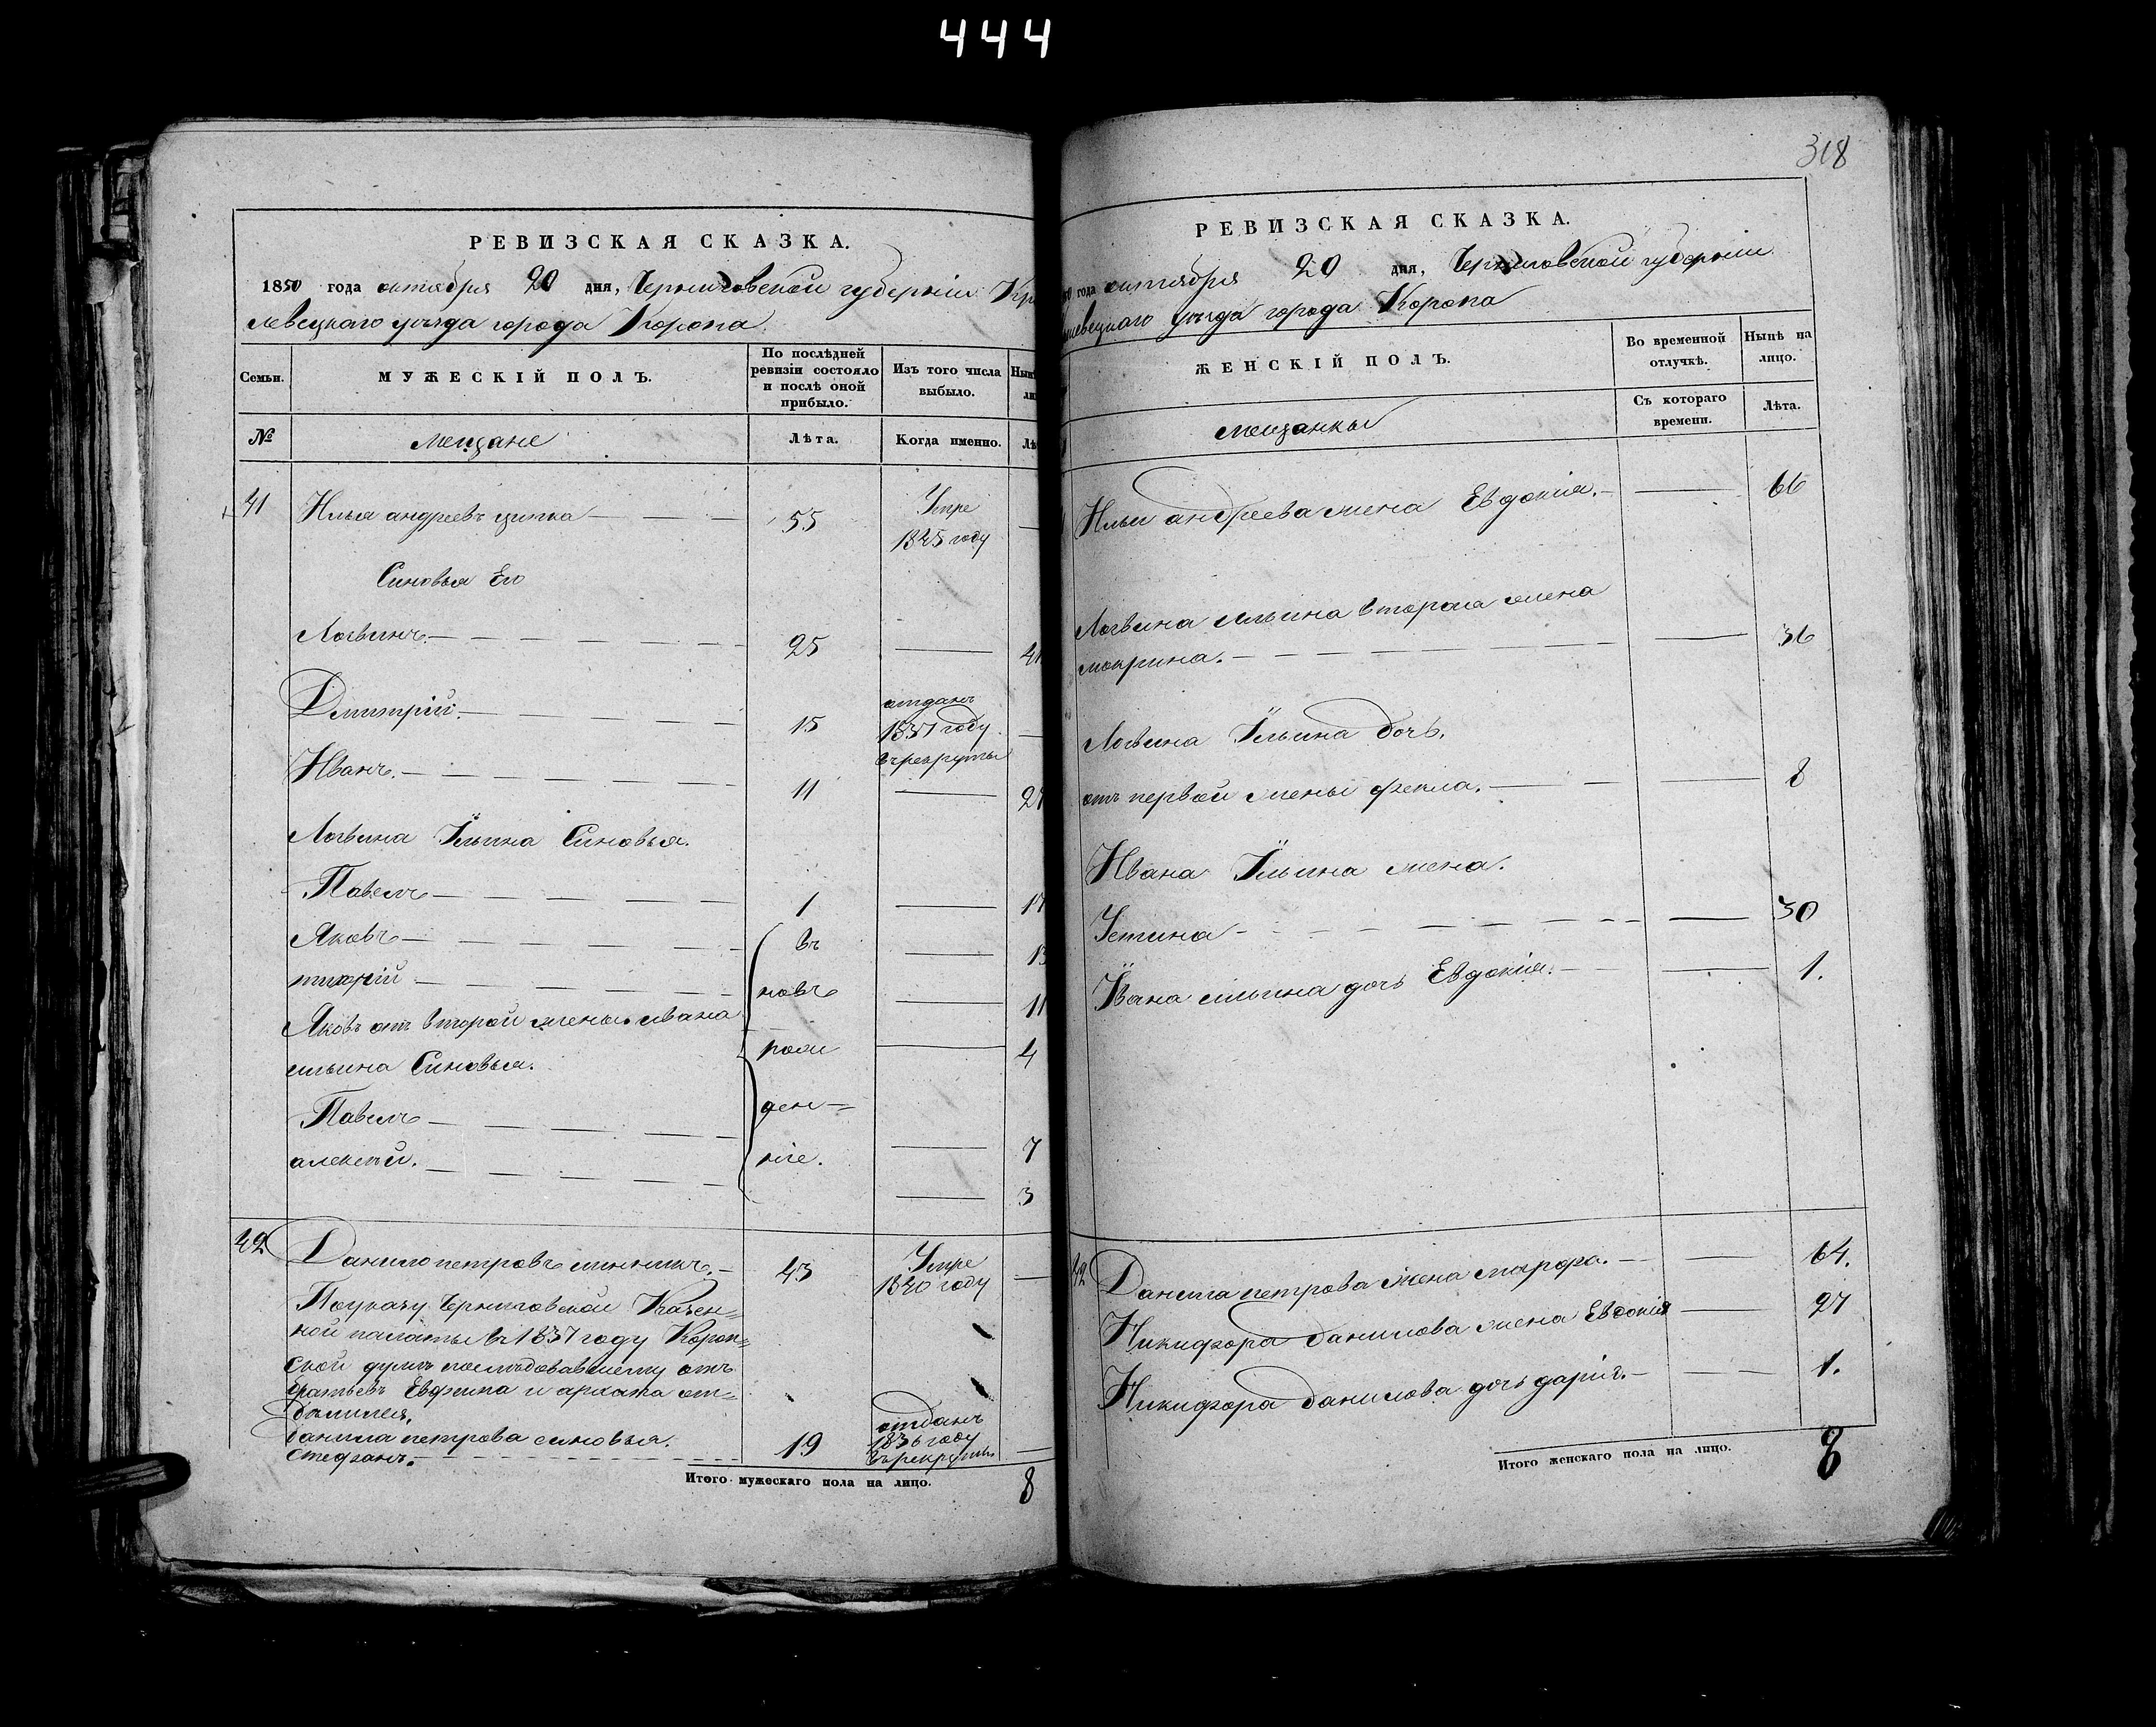 444
РЕВИЗСКАЯ СКАЗКА.
1850 года октября 20 дня, Черниговской губерніи Кро
левецкаго уѣзда города Коропа
Семьи.
МУЖЕСКІЙ ПОЛЪ.
По послѣдней
ревизіи состояло
и послѣ оной
прибыло.
Изъ того числа
выбыло.
№
мещане
Лѣта.
Когда именно.
41
Илья андреевъ
55
Умре
1845 году
Синовья Его
Логвинъ.
25
41
Дмитрій.
15
отданъ
1837 году
въ рекруты
Иванъ.
11
27
Логвина Ильина Синовья.
Павелъ
1
17
Яковъ
въ
13
тихоній
новъ
11
Яковъ отъ второй жены. ивана
рож
4
ильина Синовья.
Павелъ
ден=
7
алексѣй.
ніе.
3
42
Данило петровъ
43
Умре
1840 году
По указу Черниговской Казен=
ной палаты въ 1837 году Короп=
ской думѣ последовавшему отъ
братьевъ Евфима и архипа от=
данила петрова синовья.
Стефанъ.
19
отданъ
1836 году
въ рекруты
Итого мужескаго пола на лицо.
8
318
РЕВИЗСКАЯ СКАЗКА.
года октября 20 дня, Черниговской губерніи
левецкаго уѣзда города Коропа
ЖЕНСКІЙ ПОЛЪ.
Во временной
отлучкѣ.
Нынѣ на
лицо.
мещанки
Съ котораго
времени.
Лѣта.
Ильи андреева жена Евдокія.
66
Логвина ильина вторая жена
мокрина.
36
Логвина Ильина дочь.
отъ первой жены фекла.
8
Ивана Ильина жена.
Устина
30
Ивана ильина дочь Евдокія.
1.
42
Данила петрова жена марфа.
64.
Никифора данилова жена Евдокія
27
Никифора данилова дочь дарія.
1.
Итого женскаго пола на лицо.
8